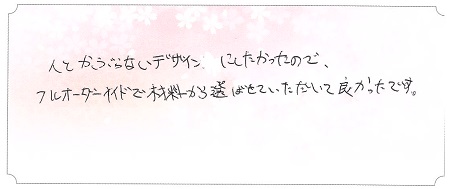 人とかぶらないデザインにしたかったので、
フルオーダーメイドで材料から選ばせていただいて良かったです。